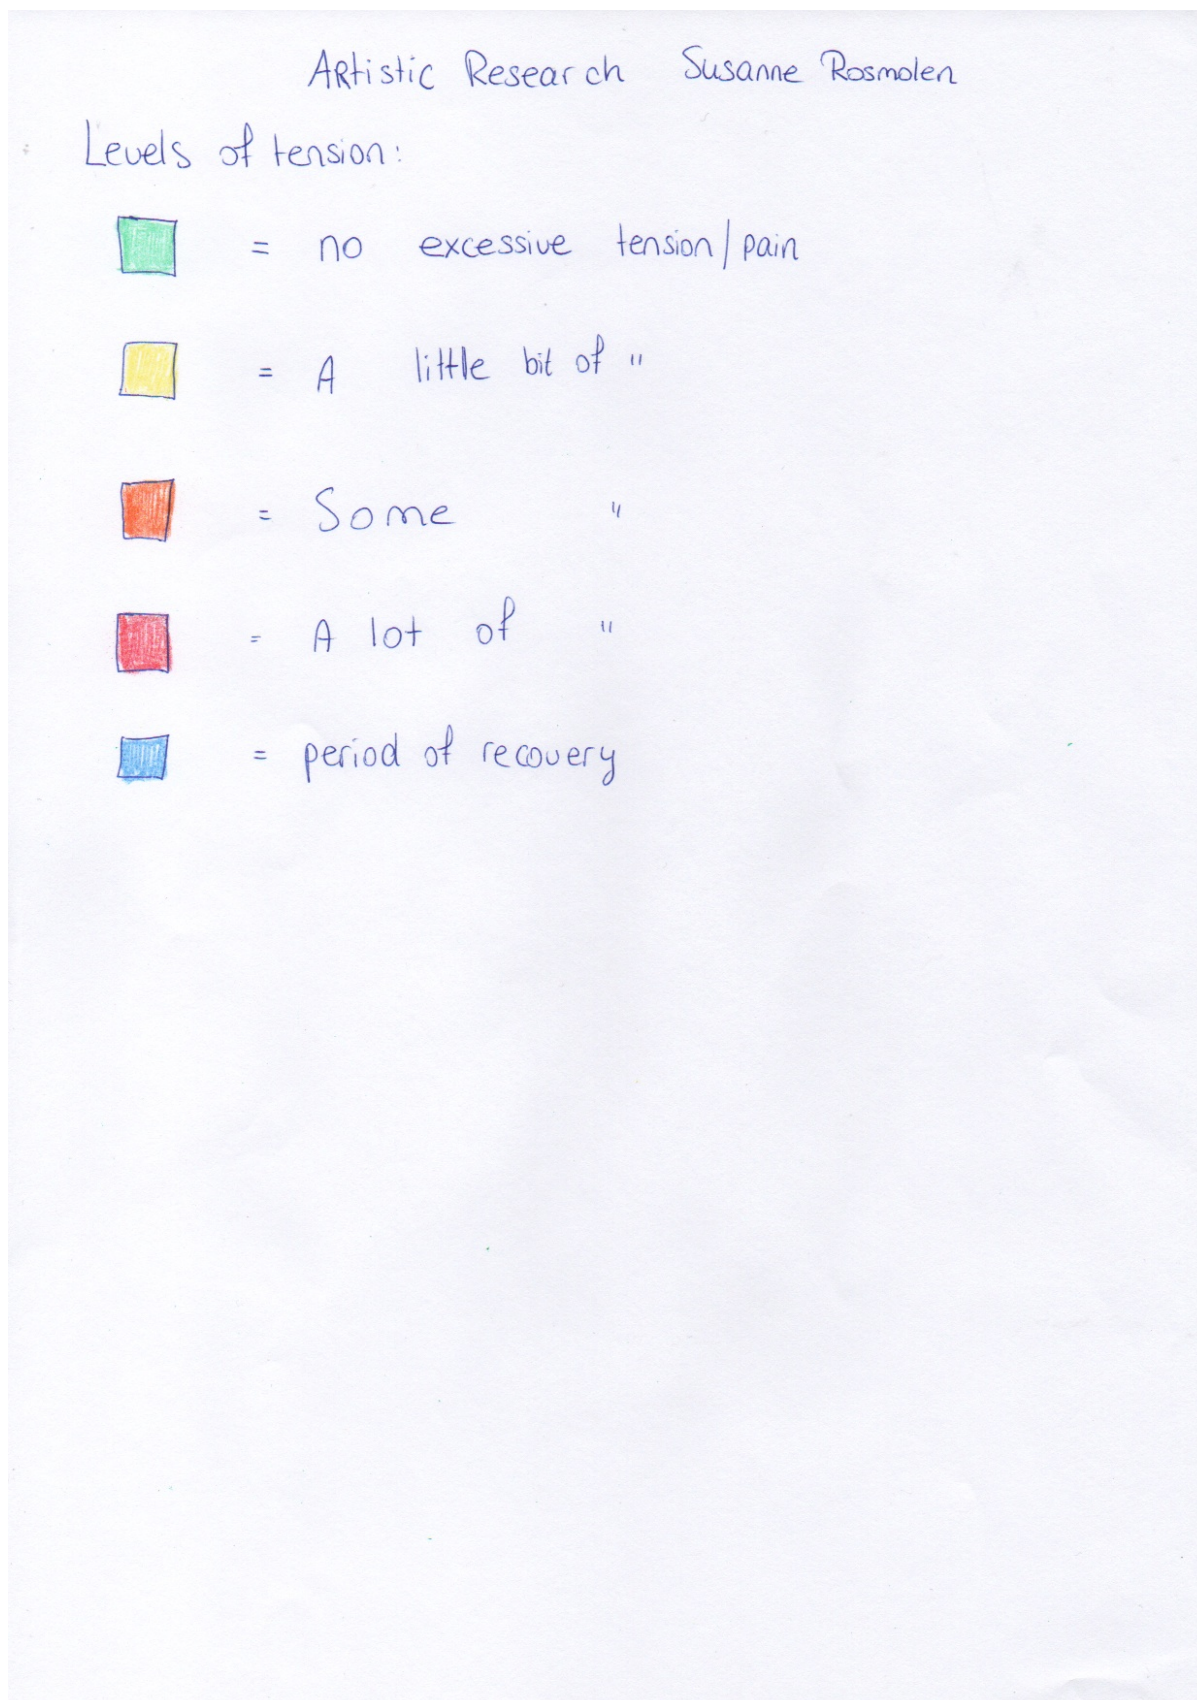 Artistic Research Susanne Rosmolen
Levels of tension:
= no excessive tension/pain
= A little bit of "
= Some "
= A lot of "
= period of recovery